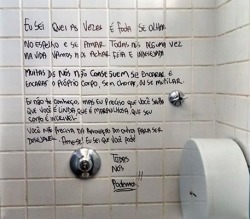 Eu sei que as vezes é foda se olhar
no espelho e se amar. Todas nós alguma vez
na vida vamos nos achar feia e indesejada
Muitas de nós não conseguem se encarar e
encarar o próprio corpo, sem chorar, ou se mutilar.
Eu não te conheço, mas eu preciso que você saiba
que você é linda, que é maravilhosa, que seu
corpo é incrível
Você não precisa da aprovação do outro para ser
Ame-se! Eu sei que você pode!
Todas
nós
Podemos!!!